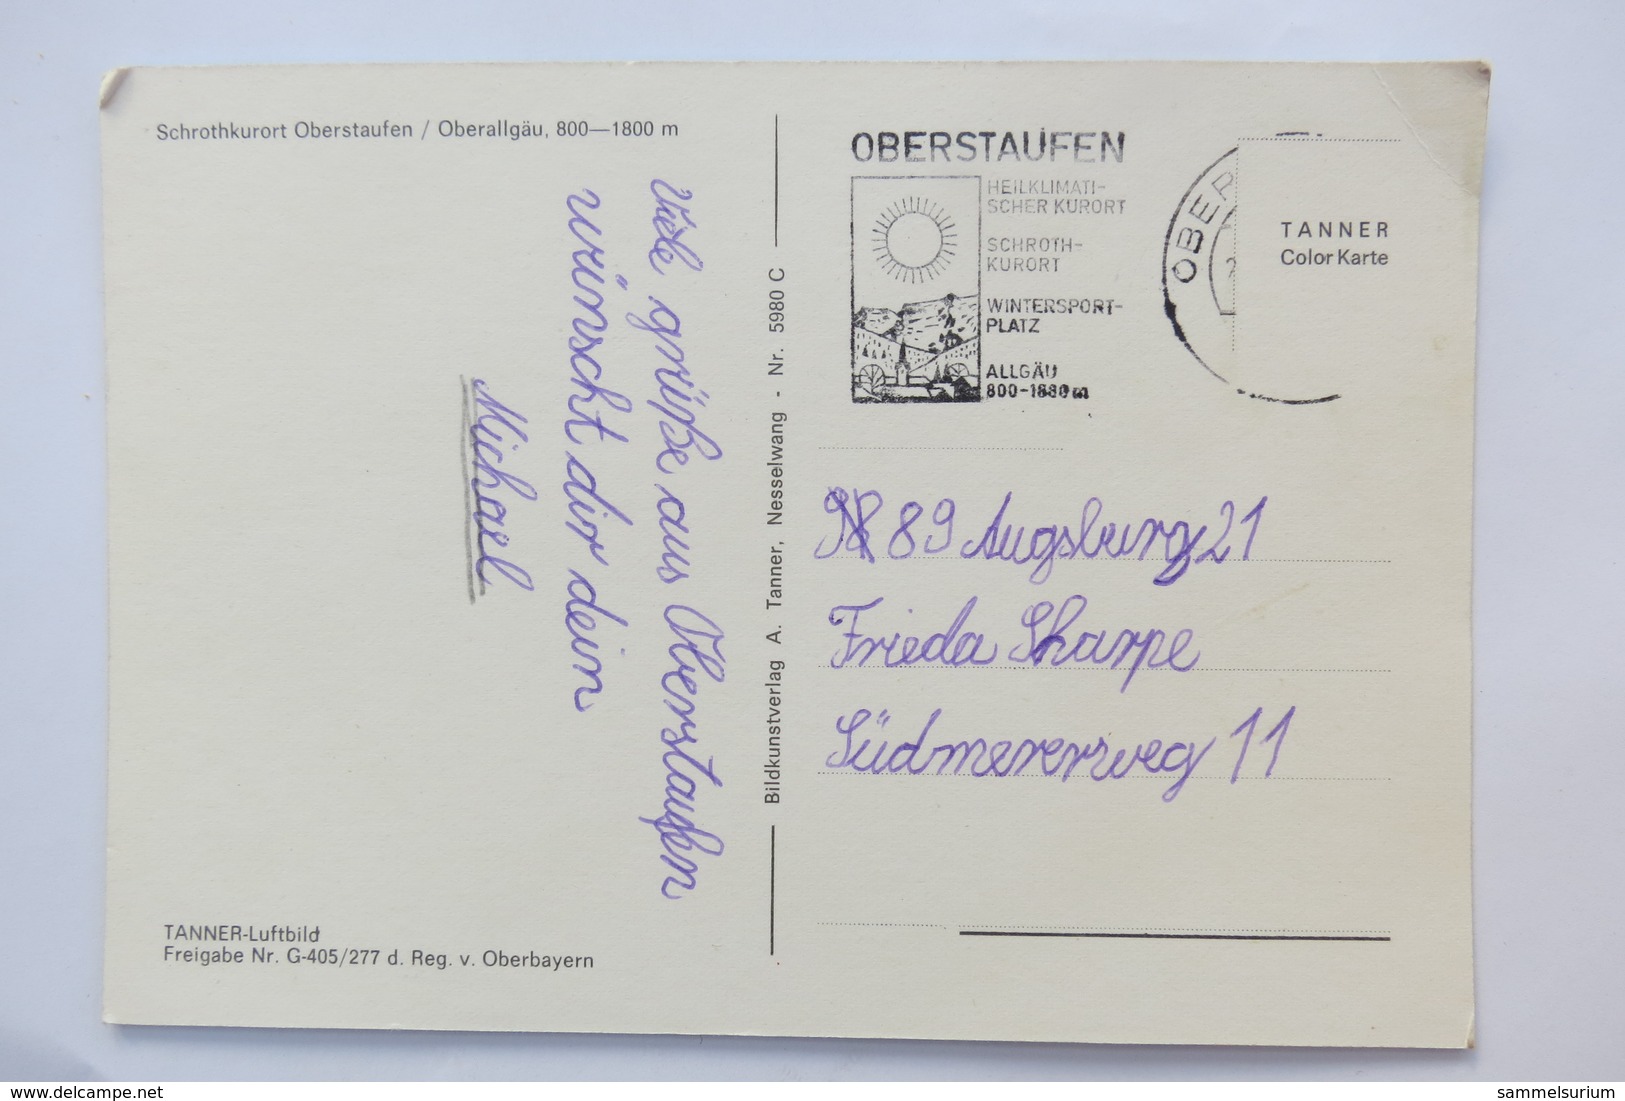 Schrothkurort Oberstaufen / Oberallgäu, 800—1800 m
Viele grüße aus Oberstaufen
wünscht dir dein
Michael
TANNER-Luftbild
Freigabe Nr. G-405/277 d. Reg. v. Oberbayern
Bildkunstverlag A. Tanner, Nesselwang - Nr. 5980 C
OBERSTAUFEN
HEILKLIMATI-
SCHER KURORT
SCHROTH-
KURORT
WINTERSPORT-
PLATZ
ALLGÄU
800-1880 m
OBER
TANNER
Color Karte
89 Augsburg 21
Frieda Sharpe
Südmererweg 11
delcampe.net
sammelsurium